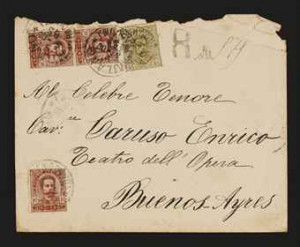 R
Al Celebre Tenore
Cav.re Caruso Enrico,
Teatro dell'Opera
Buenos-Ayres